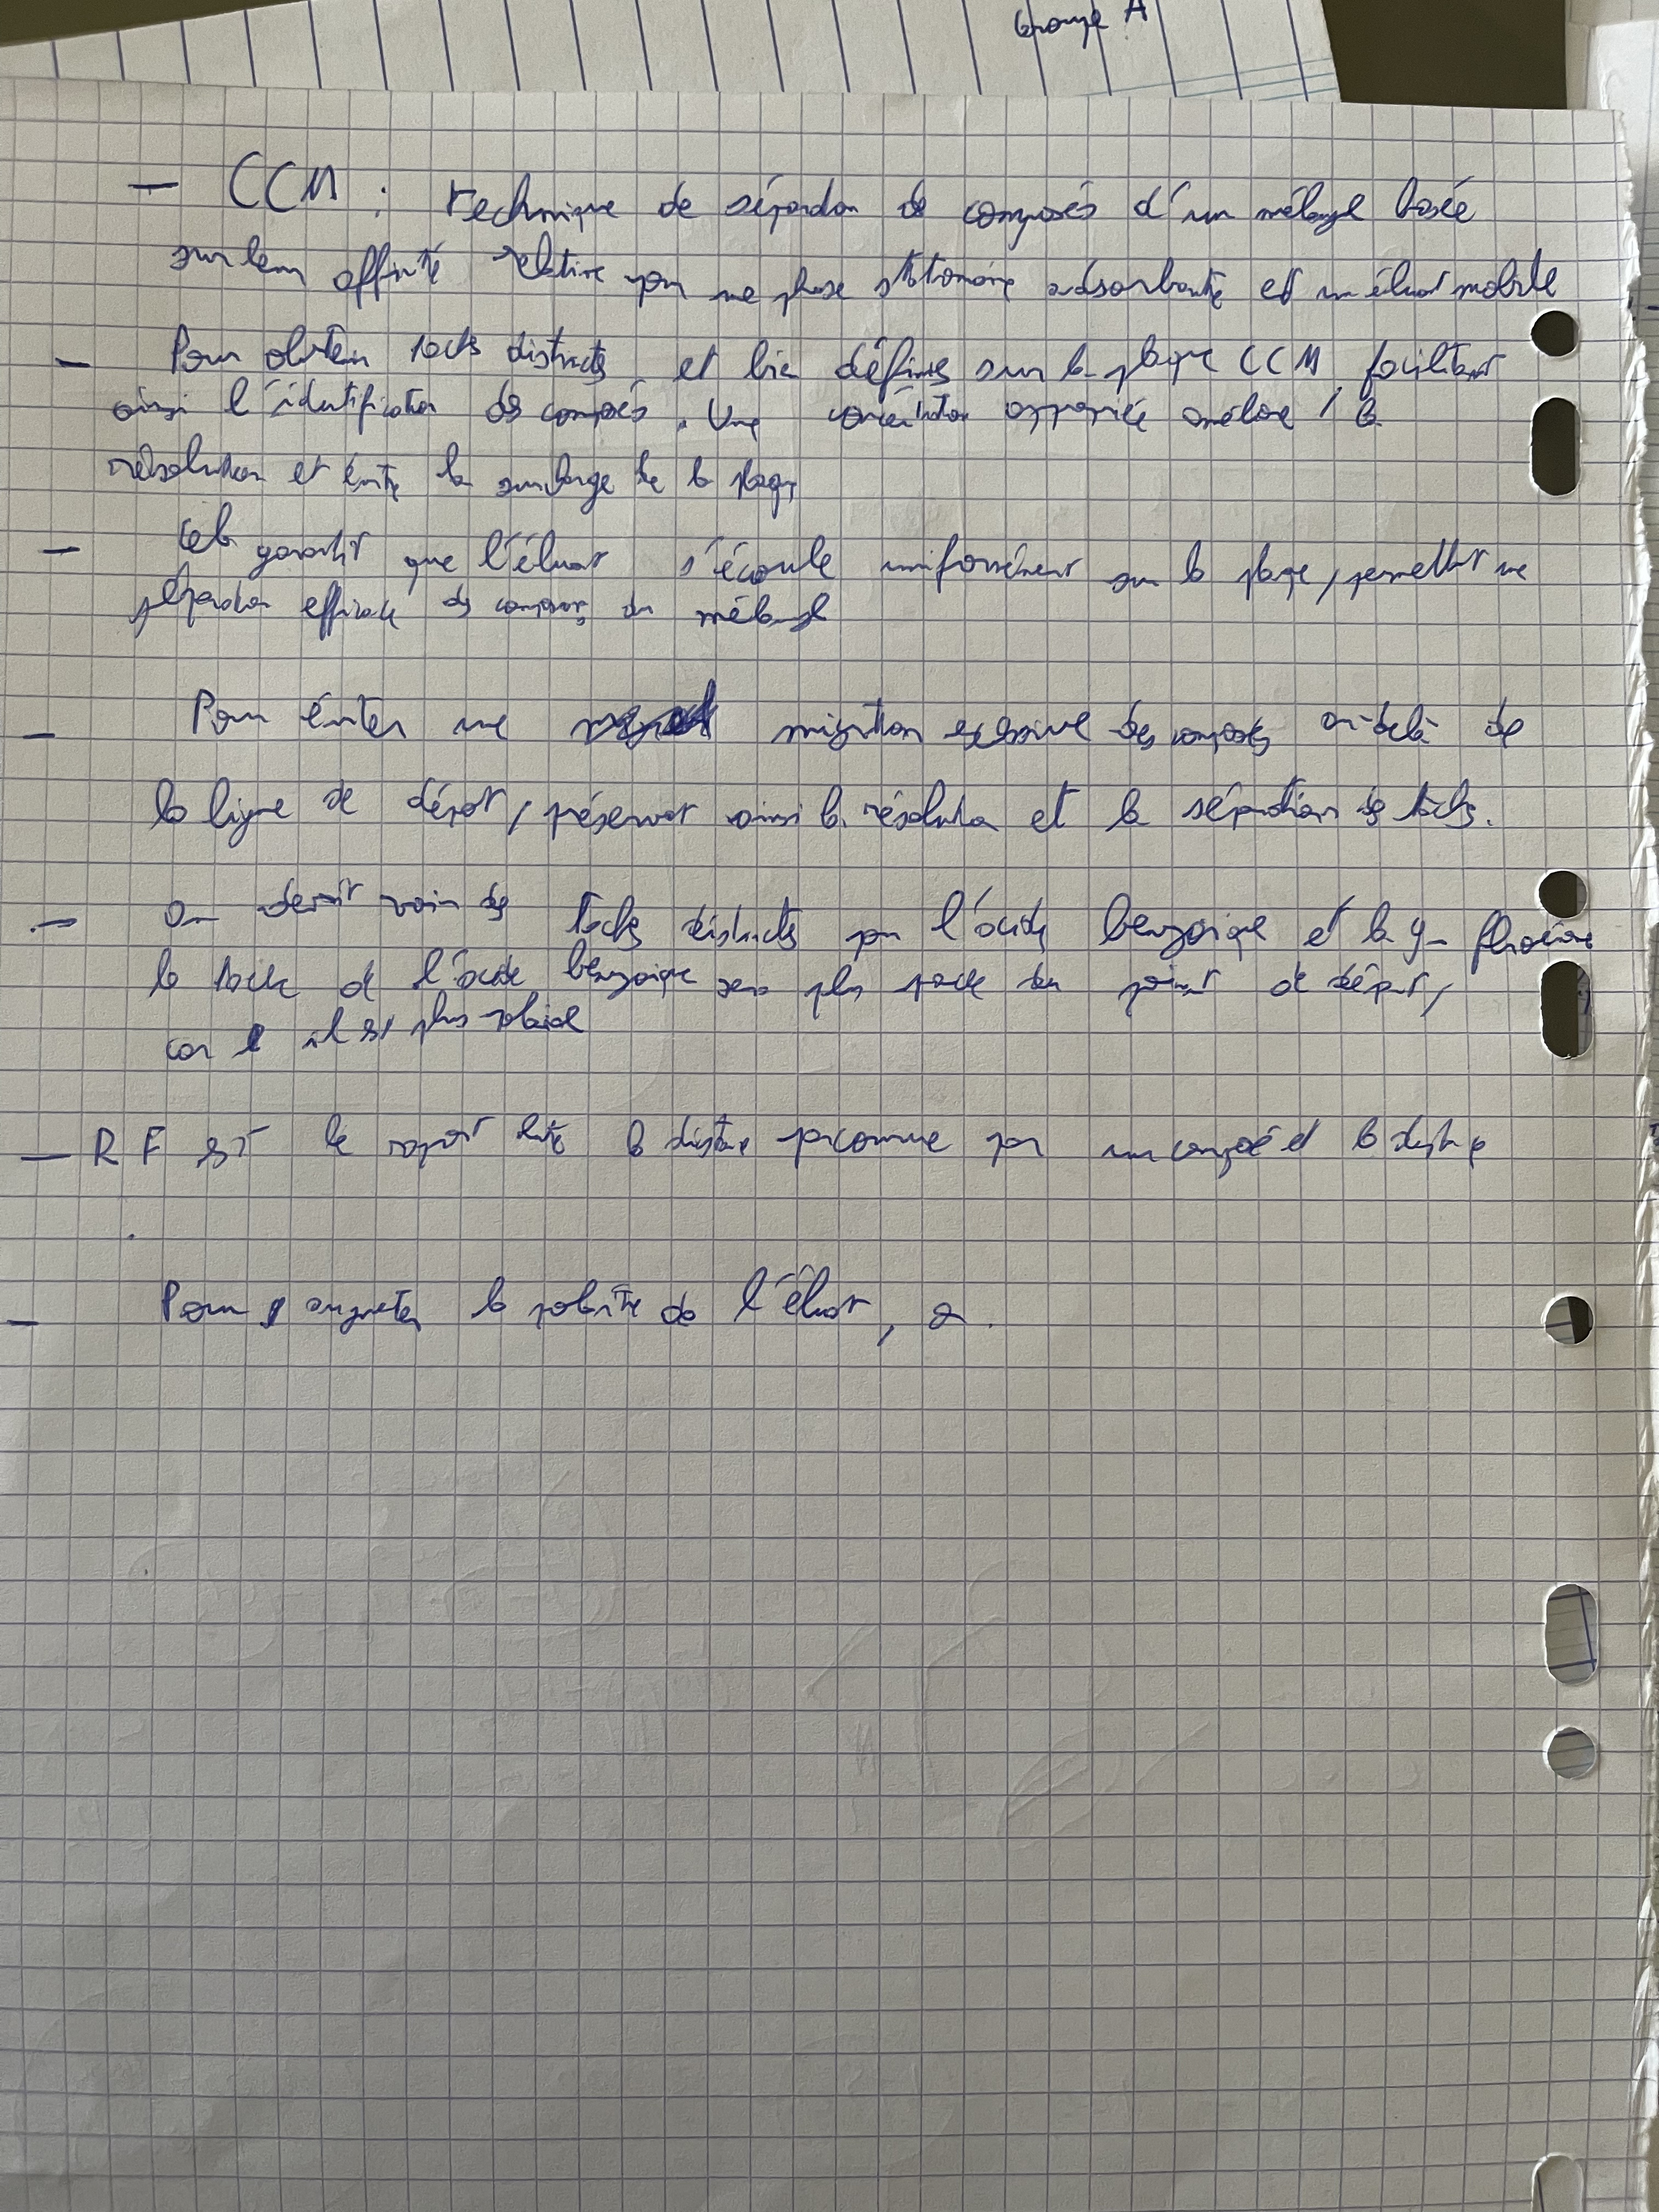 Groupe A
— CCM : Technique de séparation de composés d'un mélange basée
sur leur affinité relative pour une phase stationnaire adsorbante et un éluant mobile
— Pour obtenir taches distinctes et bien définies sur la plaque CCM, facilitant
ainsi l'identification des composés. Une concentration appropriée améliore la
résolution et évite la surcharge de la plaque
— Cela garantit que l'éluant s'écoule uniformément sur la plaque, permettant une
séparation efficace des composés du mélange
— Pour éviter une migration excessive des composés au-delà de
la ligne de dépôt, préservant ainsi la résolution et la séparation des taches.
— On devrait voir des taches distinctes pour l'acide benzoïque et la 9-
la tache de l'acide benzoïque sera plus proche du point de départ,
car il est plus polaire
— RF est le rapport entre la distance parcourue par un composé et la distance
— Pour augmenter la polarité de l'éluant,